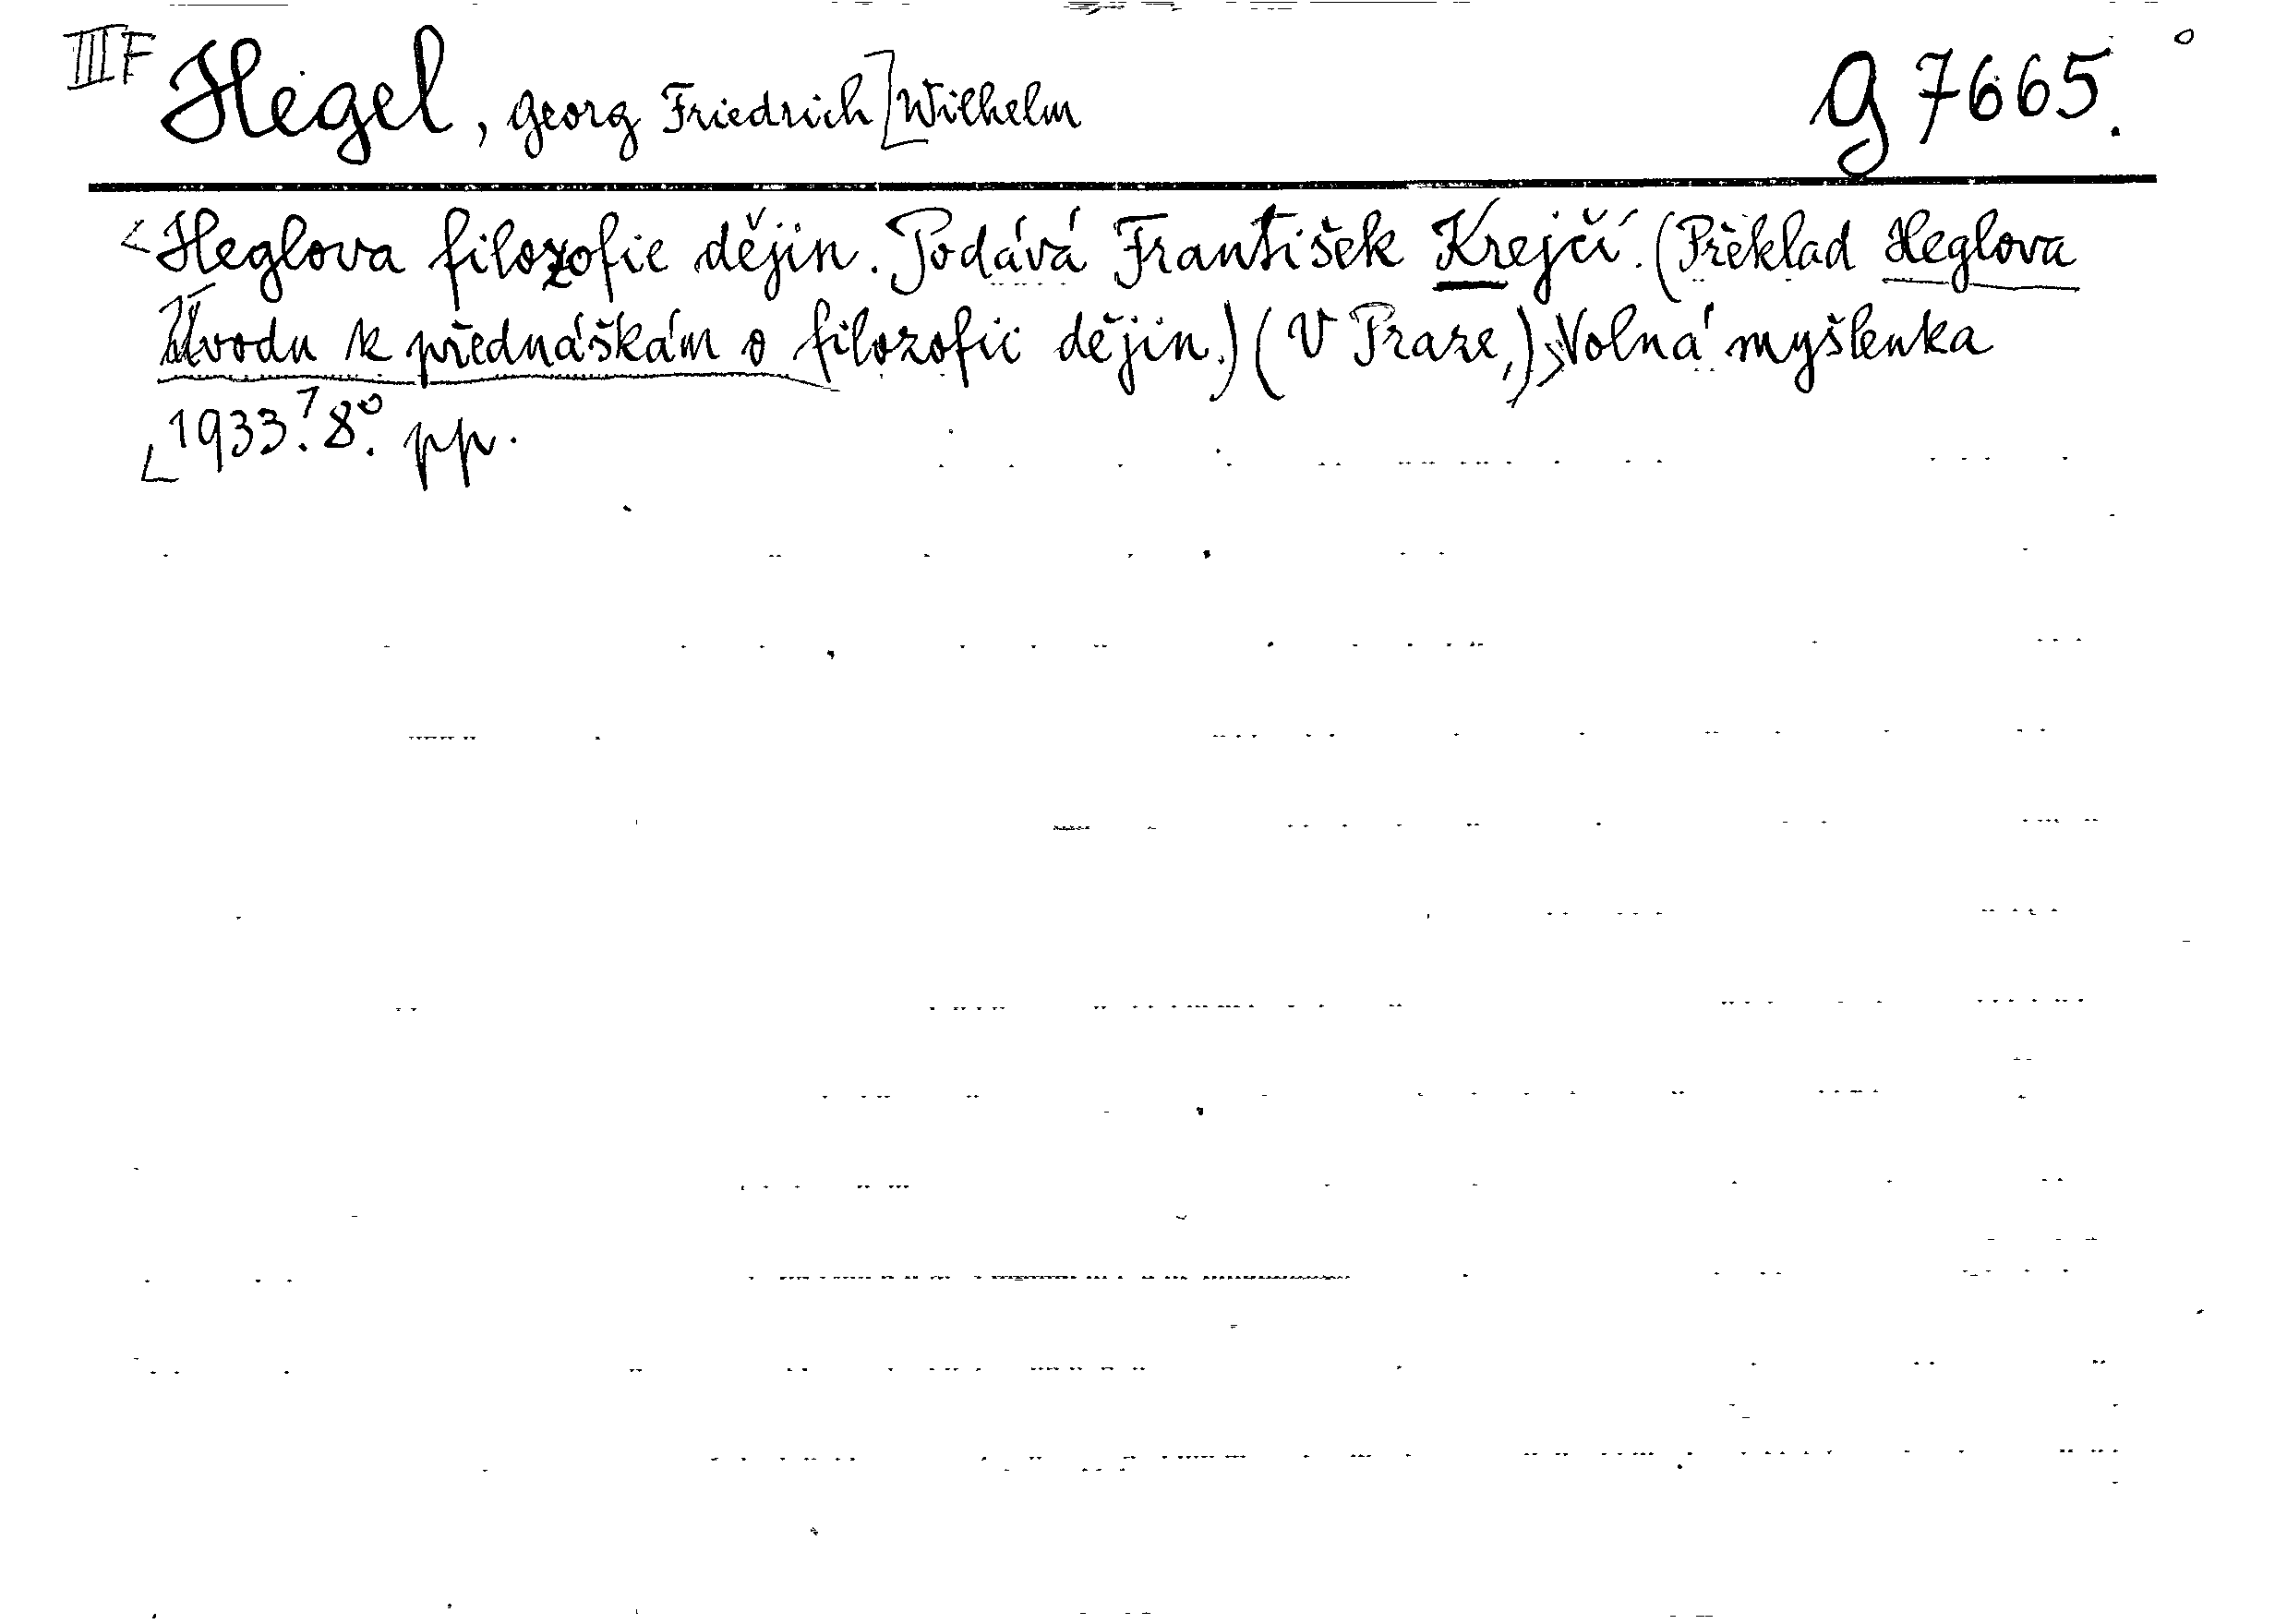 III F Hegel, Georg Friedrich] Wilhelm g 7665.
<Heglova filozofie dějin. Podává František Krejčí. (Překlad Heglova
Úvodu k přednáškám o filozofii dějin.) (V Praze,) Volná myšlenka
1933. 8°. pp.